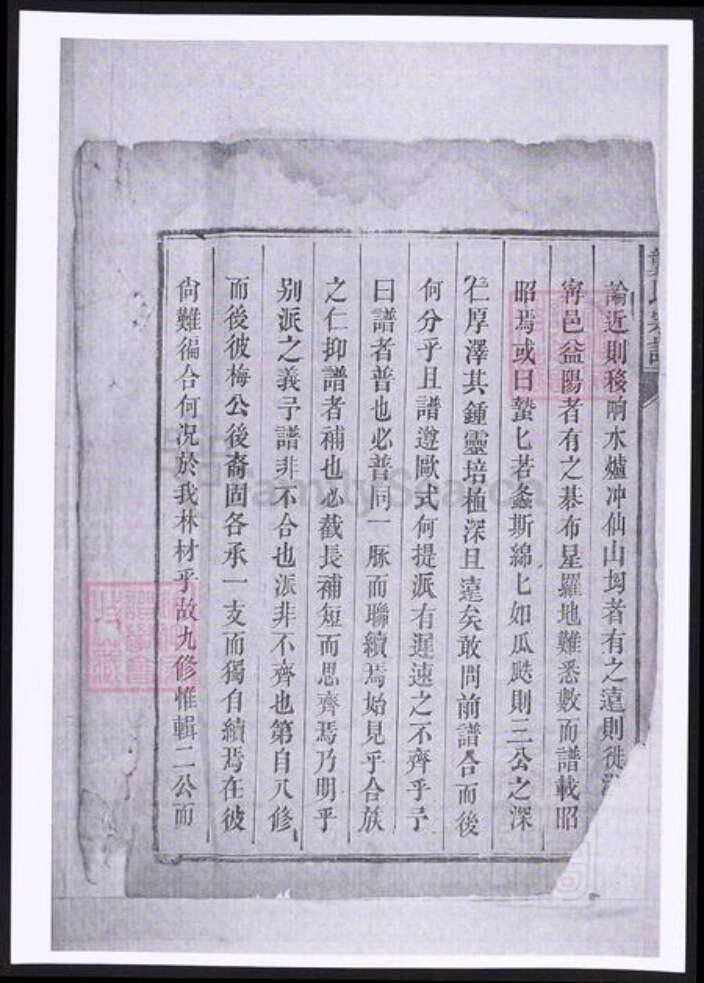 氏宗譜
論近則移响水爐冲仙山坳者有之遠則徙
甯邑益陽者有之棊布星羅地難悉數而譜載昭
昭焉或曰蟄匕若螽斯綿匕如瓜瓞則三公之深
仁厚澤其鍾靈培植深且遠矣敢問前譜合而後
何分乎且譜遵歐式何提派有遲速之不齊乎予
曰譜者普也必普同一脉而聯續焉始見乎合族
之仁抑譜者補也必截長補短而思齊焉乃明乎
别派之義予譜非不合也派非不齊也第自八修
而後彼梅公後裔固各承一支而獨自續焉在彼
尙難徧合何况於我林材乎故九修惟輯二公而
FamilySearch